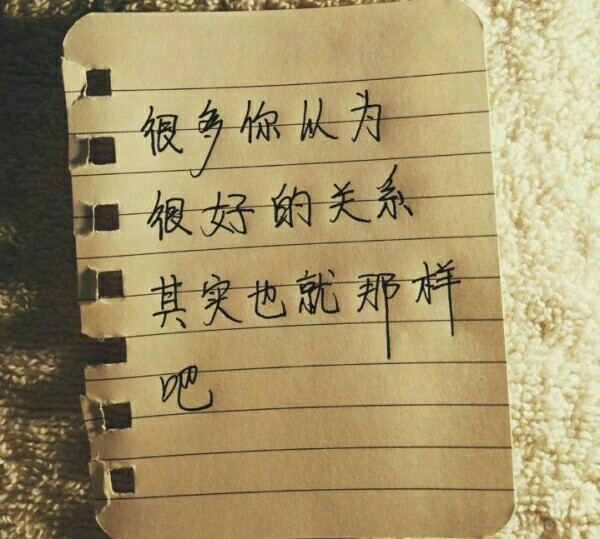 很多你从为
很好的关系
其实也就那样
吧